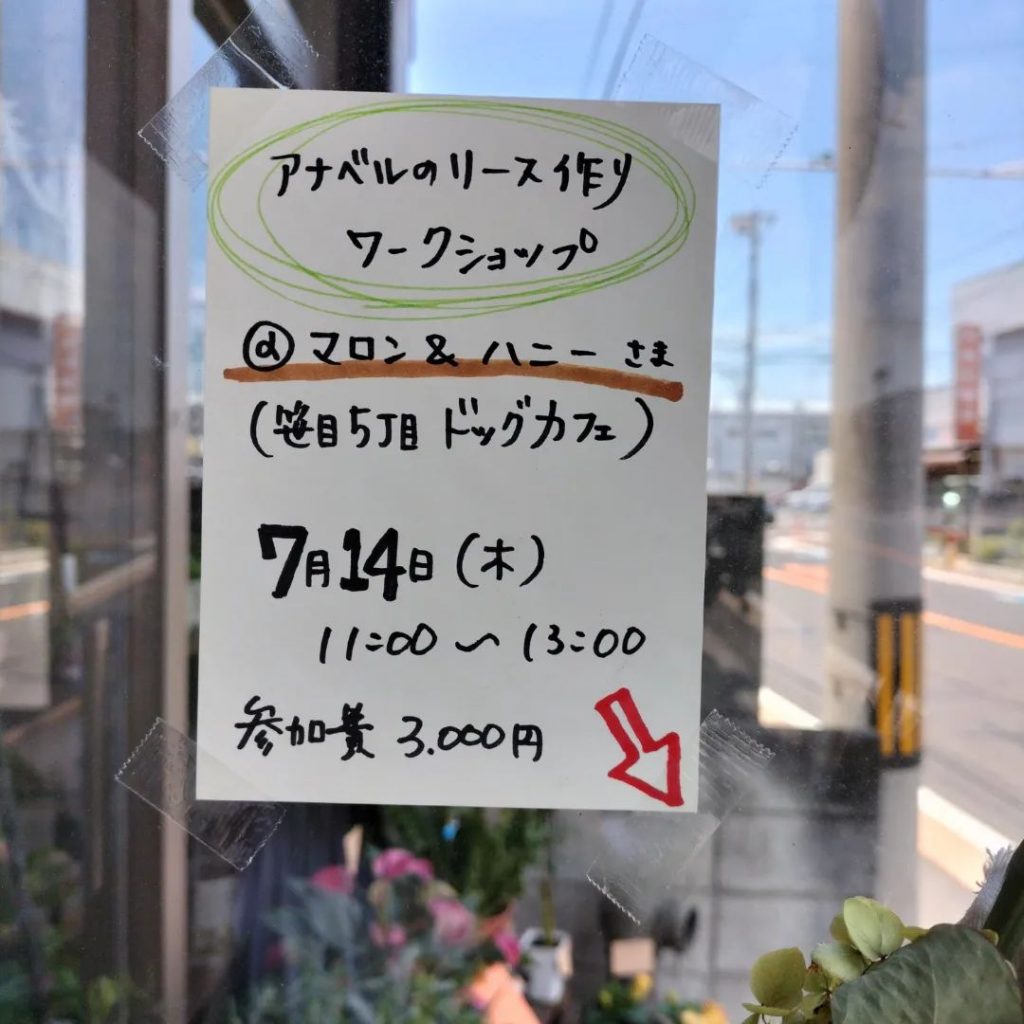 アナベルのリース作り
ワークショップ
@ マロン & ハニー さま
(笹目5丁目 ドッグカフェ)
7月14日(木)
11:00 〜 13:00
参加費 3.000円